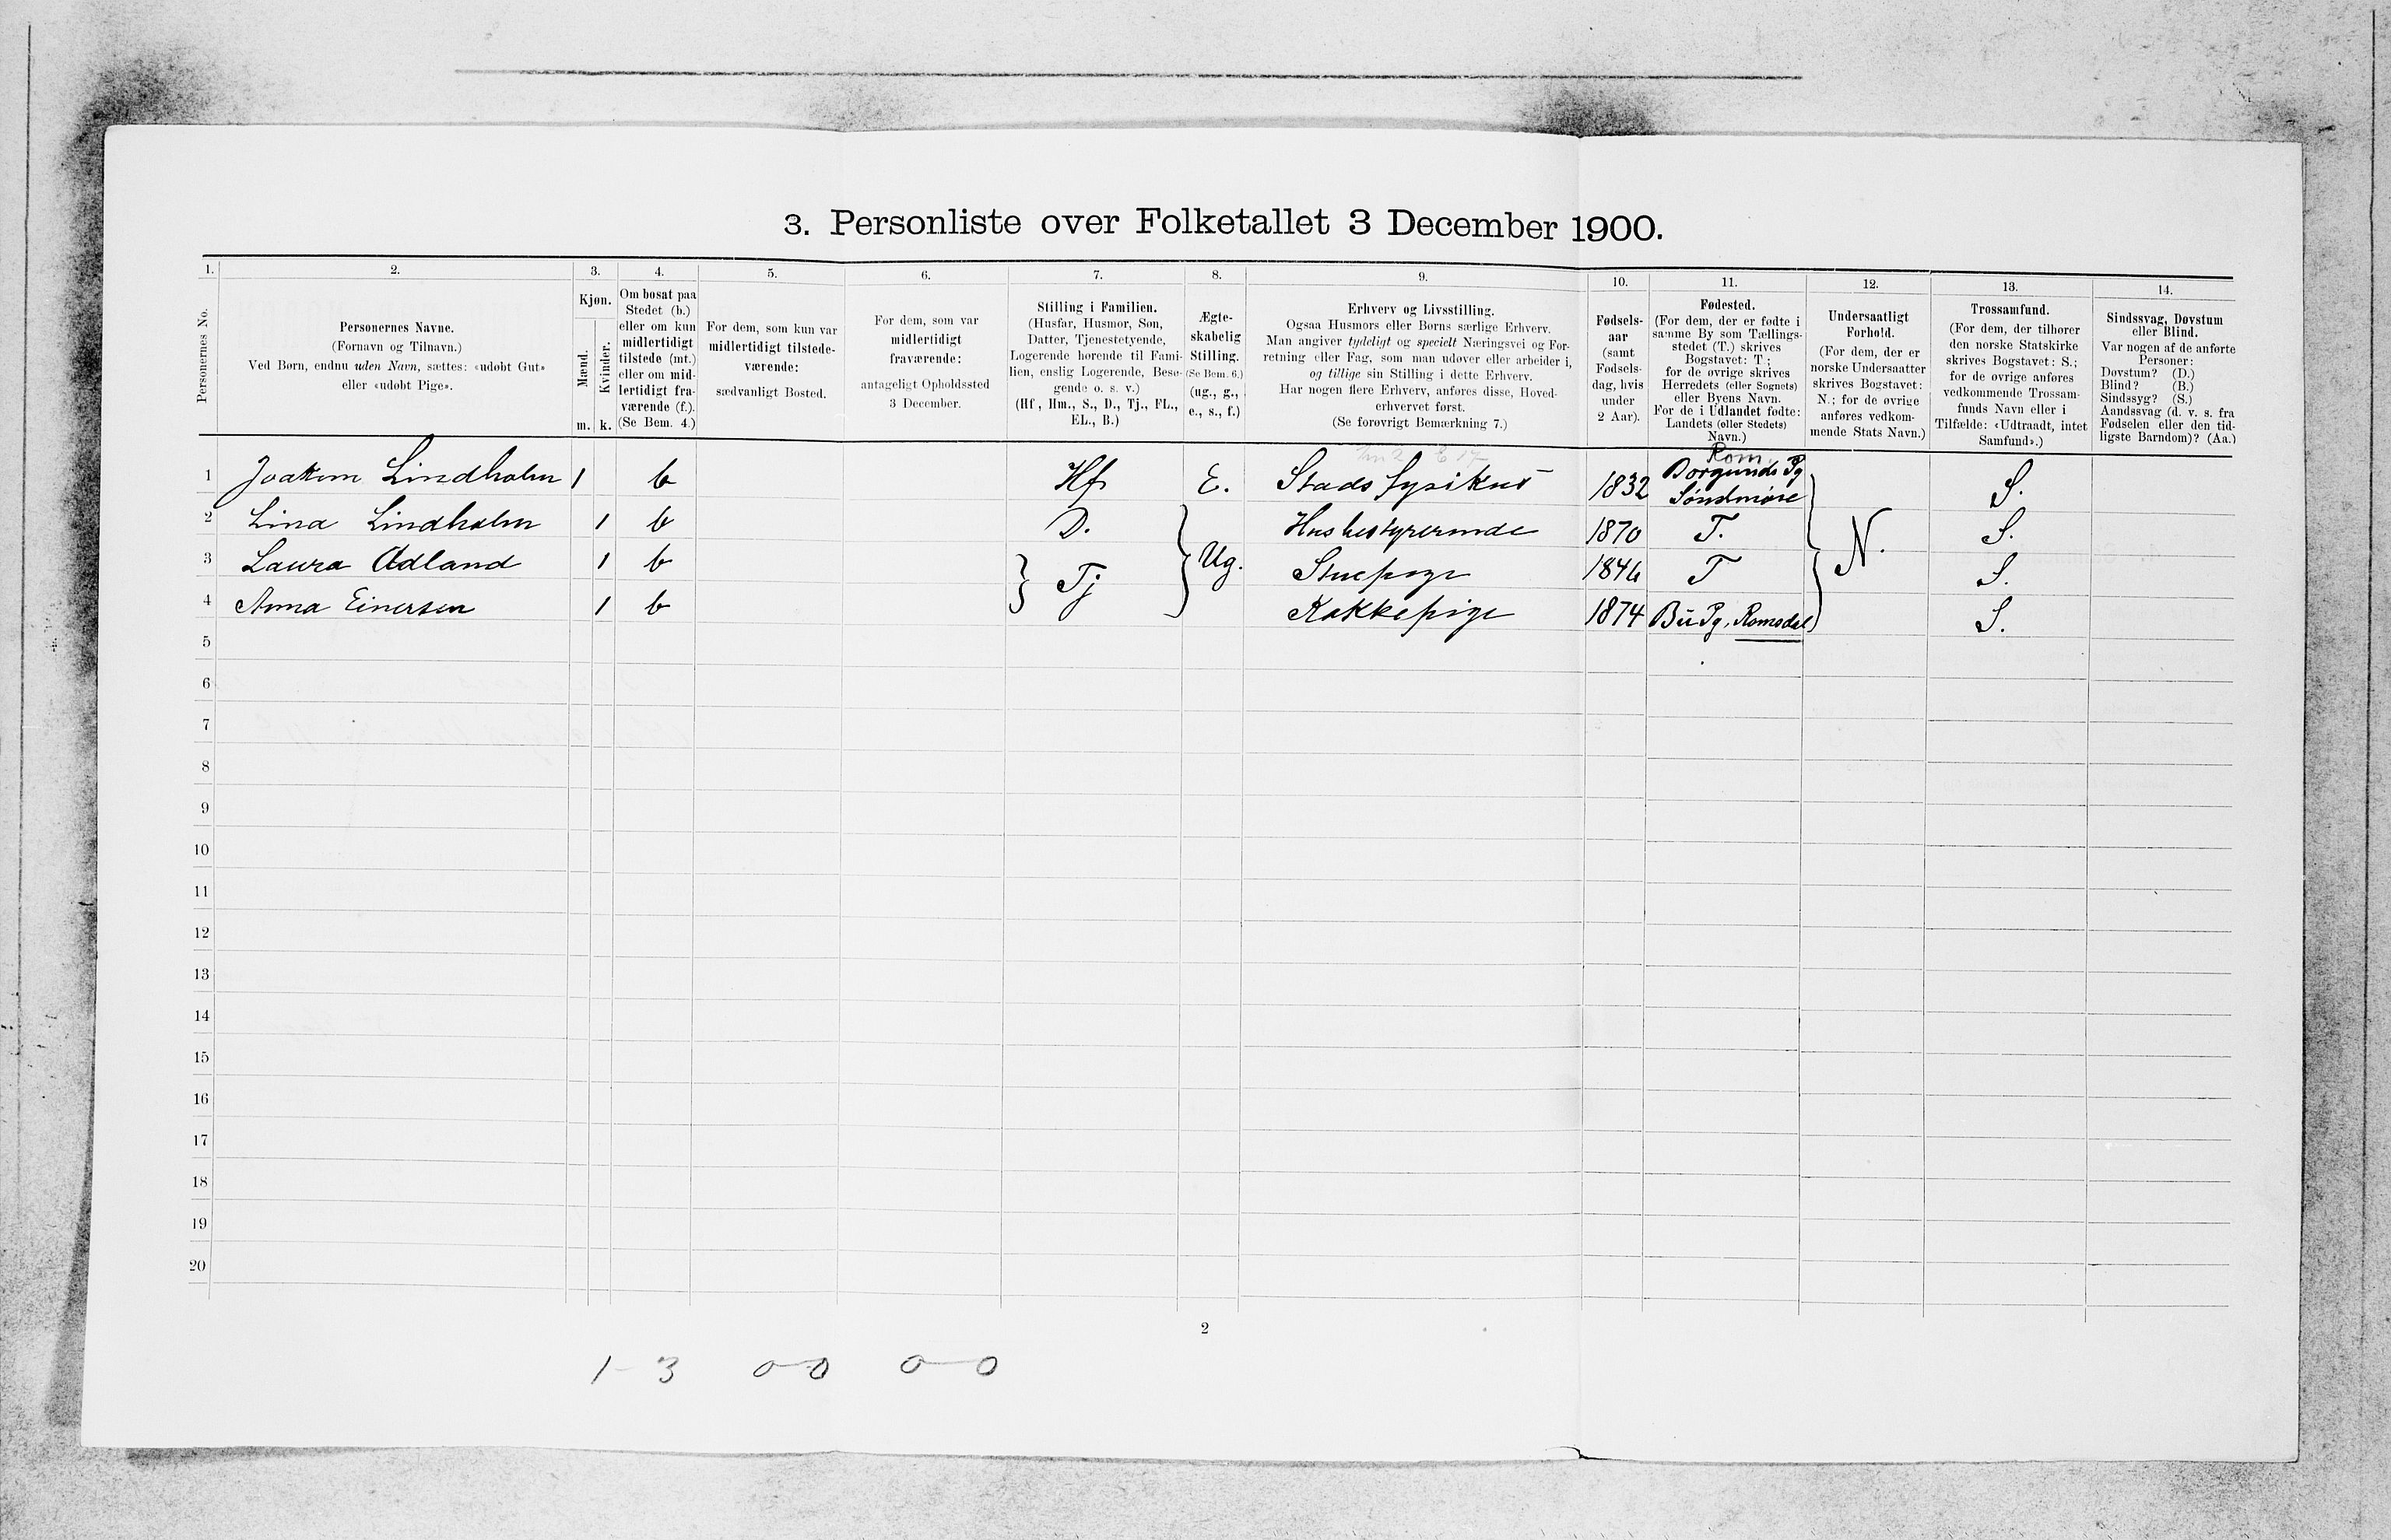 3. Personliste over Folketallet 3 December 1900.
1. 2. 3. 4. 5. 6. 7. 8. 9. 10. 11. 12. 13. 14.
Personernes No.
Personernes Navne.
(Fornavn og Tilnavn.)
Ved Børn, endnu uden Navn, sættes: «udøbt Gut»
eller «udøbt Pige».
Kjøn.
Mænd.
Kvinder.
m. k.
Om bosat paa
Stedet (b.)
eller om kun
midlertidigt
tilstede (mt.)
eller om mid-
lertidigt fra-
værende (f.).
(Se Bem. 4.)
For dem, som kun var
midlertidigt tilstede-
værende:
sædvanligt Bosted.
For dem, som var
midlertidigt
fraværende:
antageligt Opholdssted
3 December.
Stilling i Familien.
(Husfar, Husmor, Søn,
Datter, Tjenestetyende,
Logerende hørende til Fami-
lien, enslig Logerende, Besø-
gende o. s. v.)
(Hf, Hm., S., D., Tj., FL.,
EL., B.)
Ægte-
skabelig
Stilling.
(Se Bem. 6.)
(ug., g.,
e., s., f.)
Erhverv og Livsstilling.
Ogsaa Husmors eller Børns særlige Erhverv.
Man angiver tydeligt og specielt Næringsvei og For-
retning eller Fag, som man udøver eller arbeider i,
og tillige sin Stilling i dette Erhverv.
Har nogen flere Erhverv, anføres disse, Hoved-
erhvervet først.
(Se forøvrigt Bemærkning 7.)
Fødsels-
aar
(samt
Fødsels-
dag, hvis
under
2 Aar).
Fødested.
(For dem, der er fødte i
samme By som Tællings-
stedet (T.) skrives
Bogstavet: T.;
for de øvrige skrives
Herredets (eller Sognets)
eller Byens Navn.
For de i Udlandet fødte:
Landets (eller Stedets)
Navn.)
Undersaatligt
Forhold.
(For dem, der er
norske Undersaatter
skrives Bogstavet:
N.; for de øvrige
anføres vedkom-
mende Stats Navn.)
Trossamfund.
(For dem, der tilhører
den norske Statskirke
skrives Bogstavet: S.;
for de øvrige anføres
vedkommende Trossam-
funds Navn eller i
Tilfælde: «Udtraadt, intet
Samfund».)
Sindssvag, Døvstum
eller Blind.
Var nogen af de anførte
Personer:
Døvstum? (D.)
Blind? (B.)
Sindssyg? (S.)
Aandssvag (d. v. s. fra
Fødselen eller den tid-
ligste Barndom)? (Aa.)
Rom.
1 Joakim Lindholm 1 b Hf E. Stadsfysikus 1832 Borgunds Pg Søndmøre S.
2 Lina Lindholm 1 b D. Husbestyrerinde 1870 T. S.
3 Laura Adland 1 b } Tj } Ug. Stuepige 1846 T } N. S.
4 Anna Einersen 1 b Kokkepige 1874 Bü Pg, Romsdal S.
5
6
7
8
9
10
11
12
13
14
15
16
17
18
19
20
2
1-3 0-0 0-0